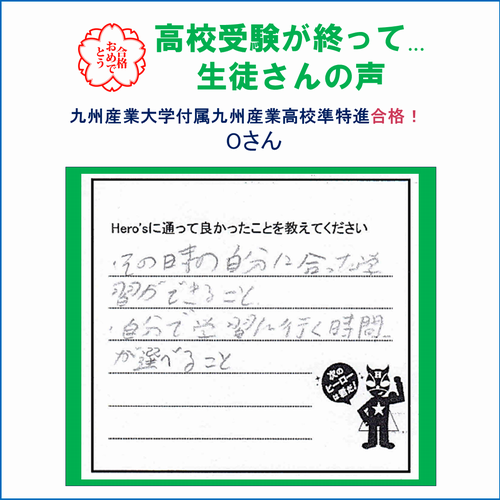 合格
おめで
とう
高校受験が終って...
生徒さんの声
九州産業大学付属九州産業高校準特進合格！
Oさん
Hero'sに通って良かったことを教えてください
・その日時の自分に合った学
習ができること
・自分で学習に行く時間
が選べること
次の
ヒーロー
は君だ！
H